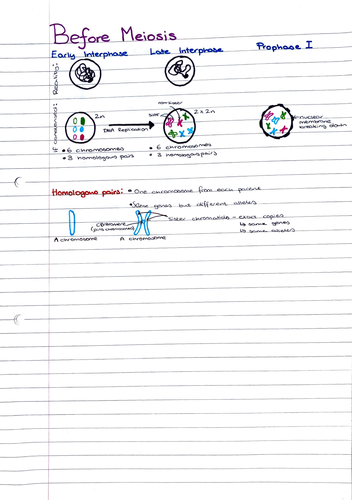 Before Meiosis
Early Interphase
Late Interphase
Prophase I
Reality:
If condensed:
2n
DNA Replication
2 x 2n
nuclear
membrane
breaking down
• 6 chromosomes
• 3 homologous pairs
• 6 chromosomes
• 3 homologous pairs
Homologous pairs: • One chromosome from each parent
• Same genes but different alleles
Sister chromatids - exact copies
↳ same genes
↳ same alleles
Centromere
A chromosome
A chromosome